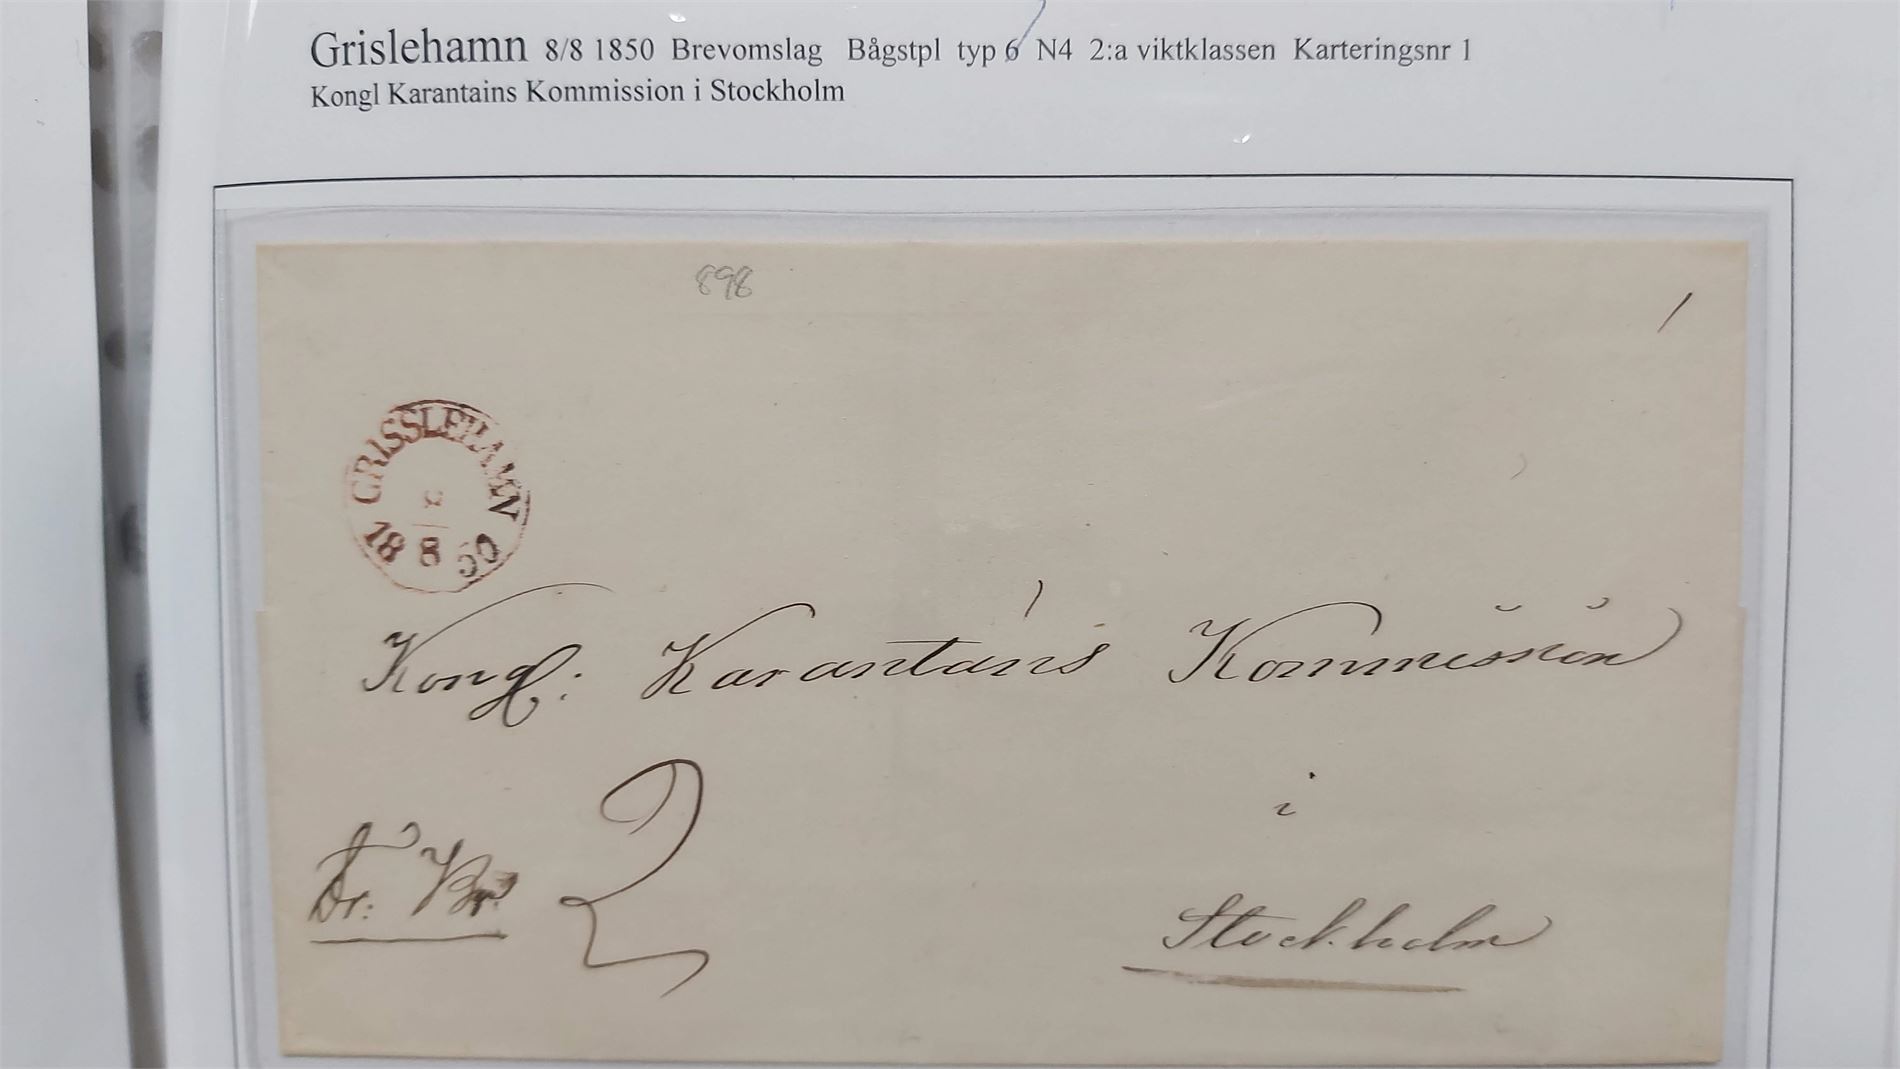 Grislehamn 8/8 1850 Brevomslag Bågstpl typ 6 N4 2:a viktklassen Karteringsnr 1
Kongl Karantains Kommission i Stockholm
898
1
GRISSLEHAMN
8
18 8 50
Kongl: Karantäns Kommission
Fr: Br: 2
i
Stockholm